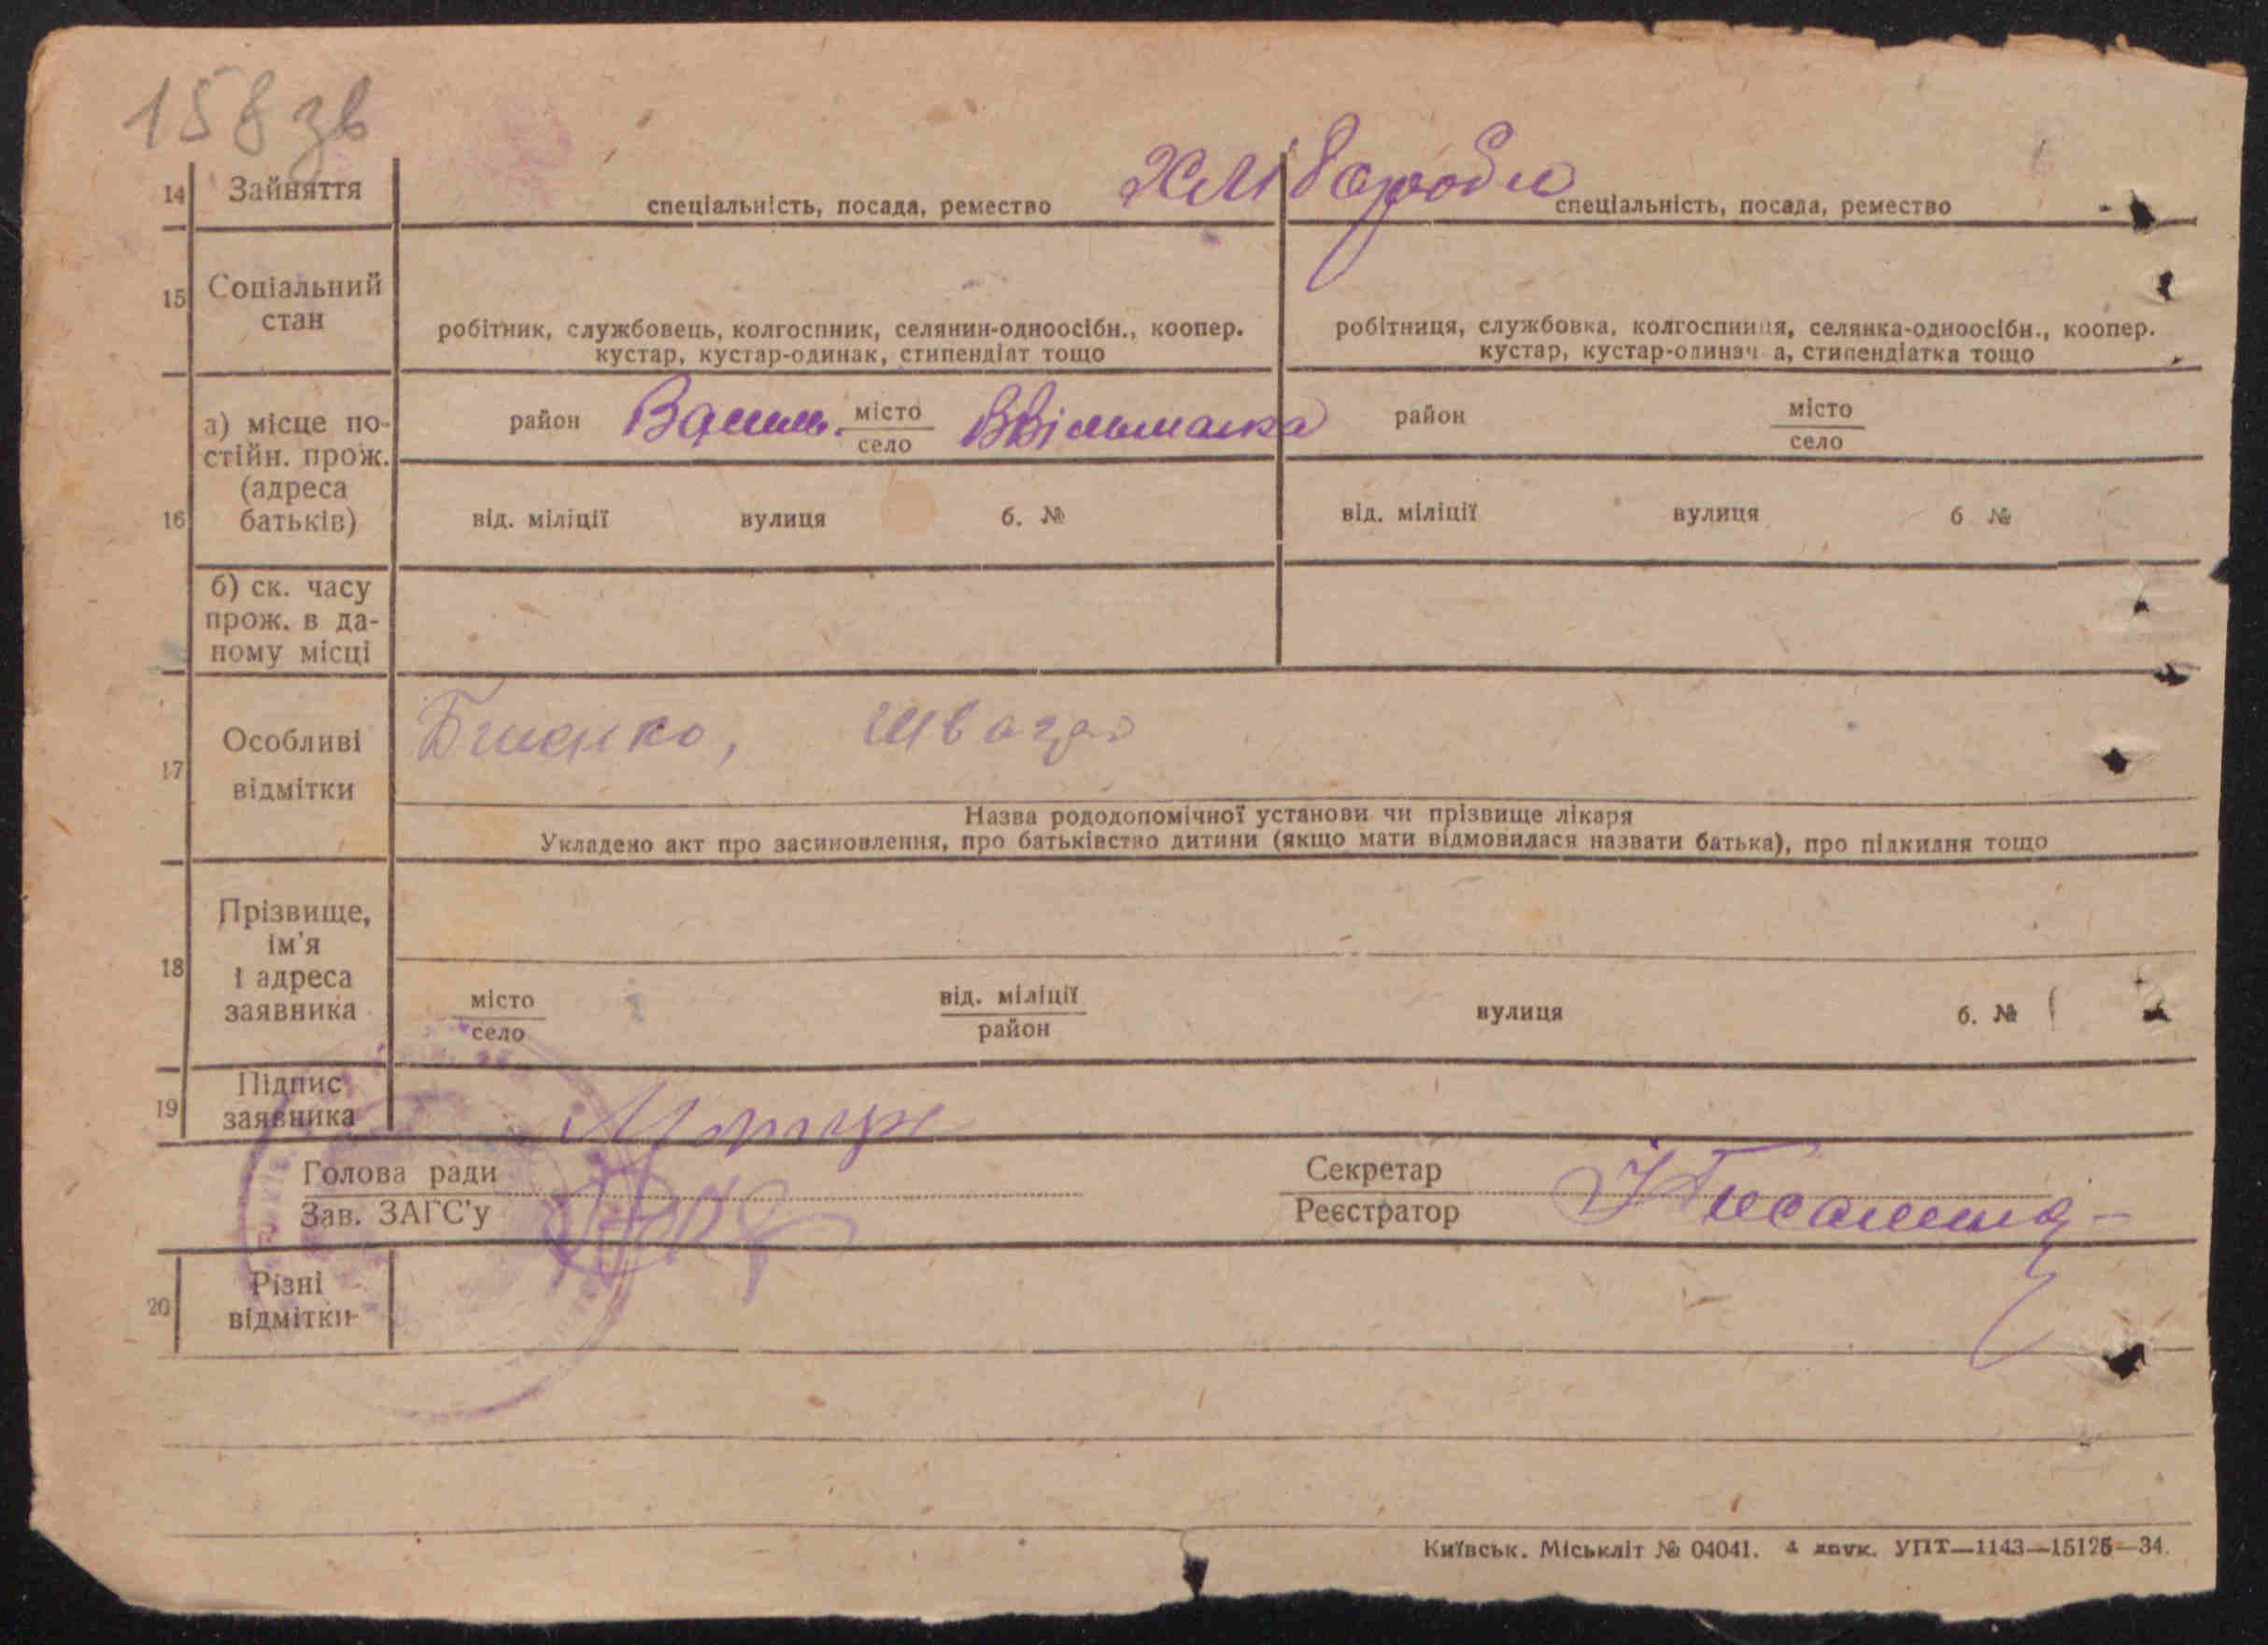 158 зв
14 Зайняття
спеціальність, посада, ремество
Хлібороби
спеціальність, посада, ремество
15 Соціальний стан
робітник, службовець, колгоспник, селянин-одноосібн., коопер.
кустар, кустар-одинак, стипендіат тощо
робітниця, службовка, колгоспниця, селянка-одноосібн., коопер.
кустар, кустар-одиначка, стипендіатка тощо
16 а) місце по-
стійн. прож.
(адреса
батьків)
район Васил. місто
село
район місто
село
від. міліції вулиця б. №
від. міліції вулиця б №
б) ск. часу
прож. в да-
ному місці
17 Особливі
відмітки
Назва рододопомічної установи чи прізвище лікаря
Укладено акт про засиновлення, про батьківство дитини (якщо мати відмовилася назвати батька), про підкидня тощо
18 Прізвище,
ім'я
і адреса
заявника
місто
село
від. міліції
район
вулиця
б. №
19 Підпис
заявника
Голова ради
Зав. ЗАГС'у
Секретар
Реєстратор
20 Різні
відмітки
Київськ. Міськліт № 04041. 4 друк. УПТ—1143—15125—34.